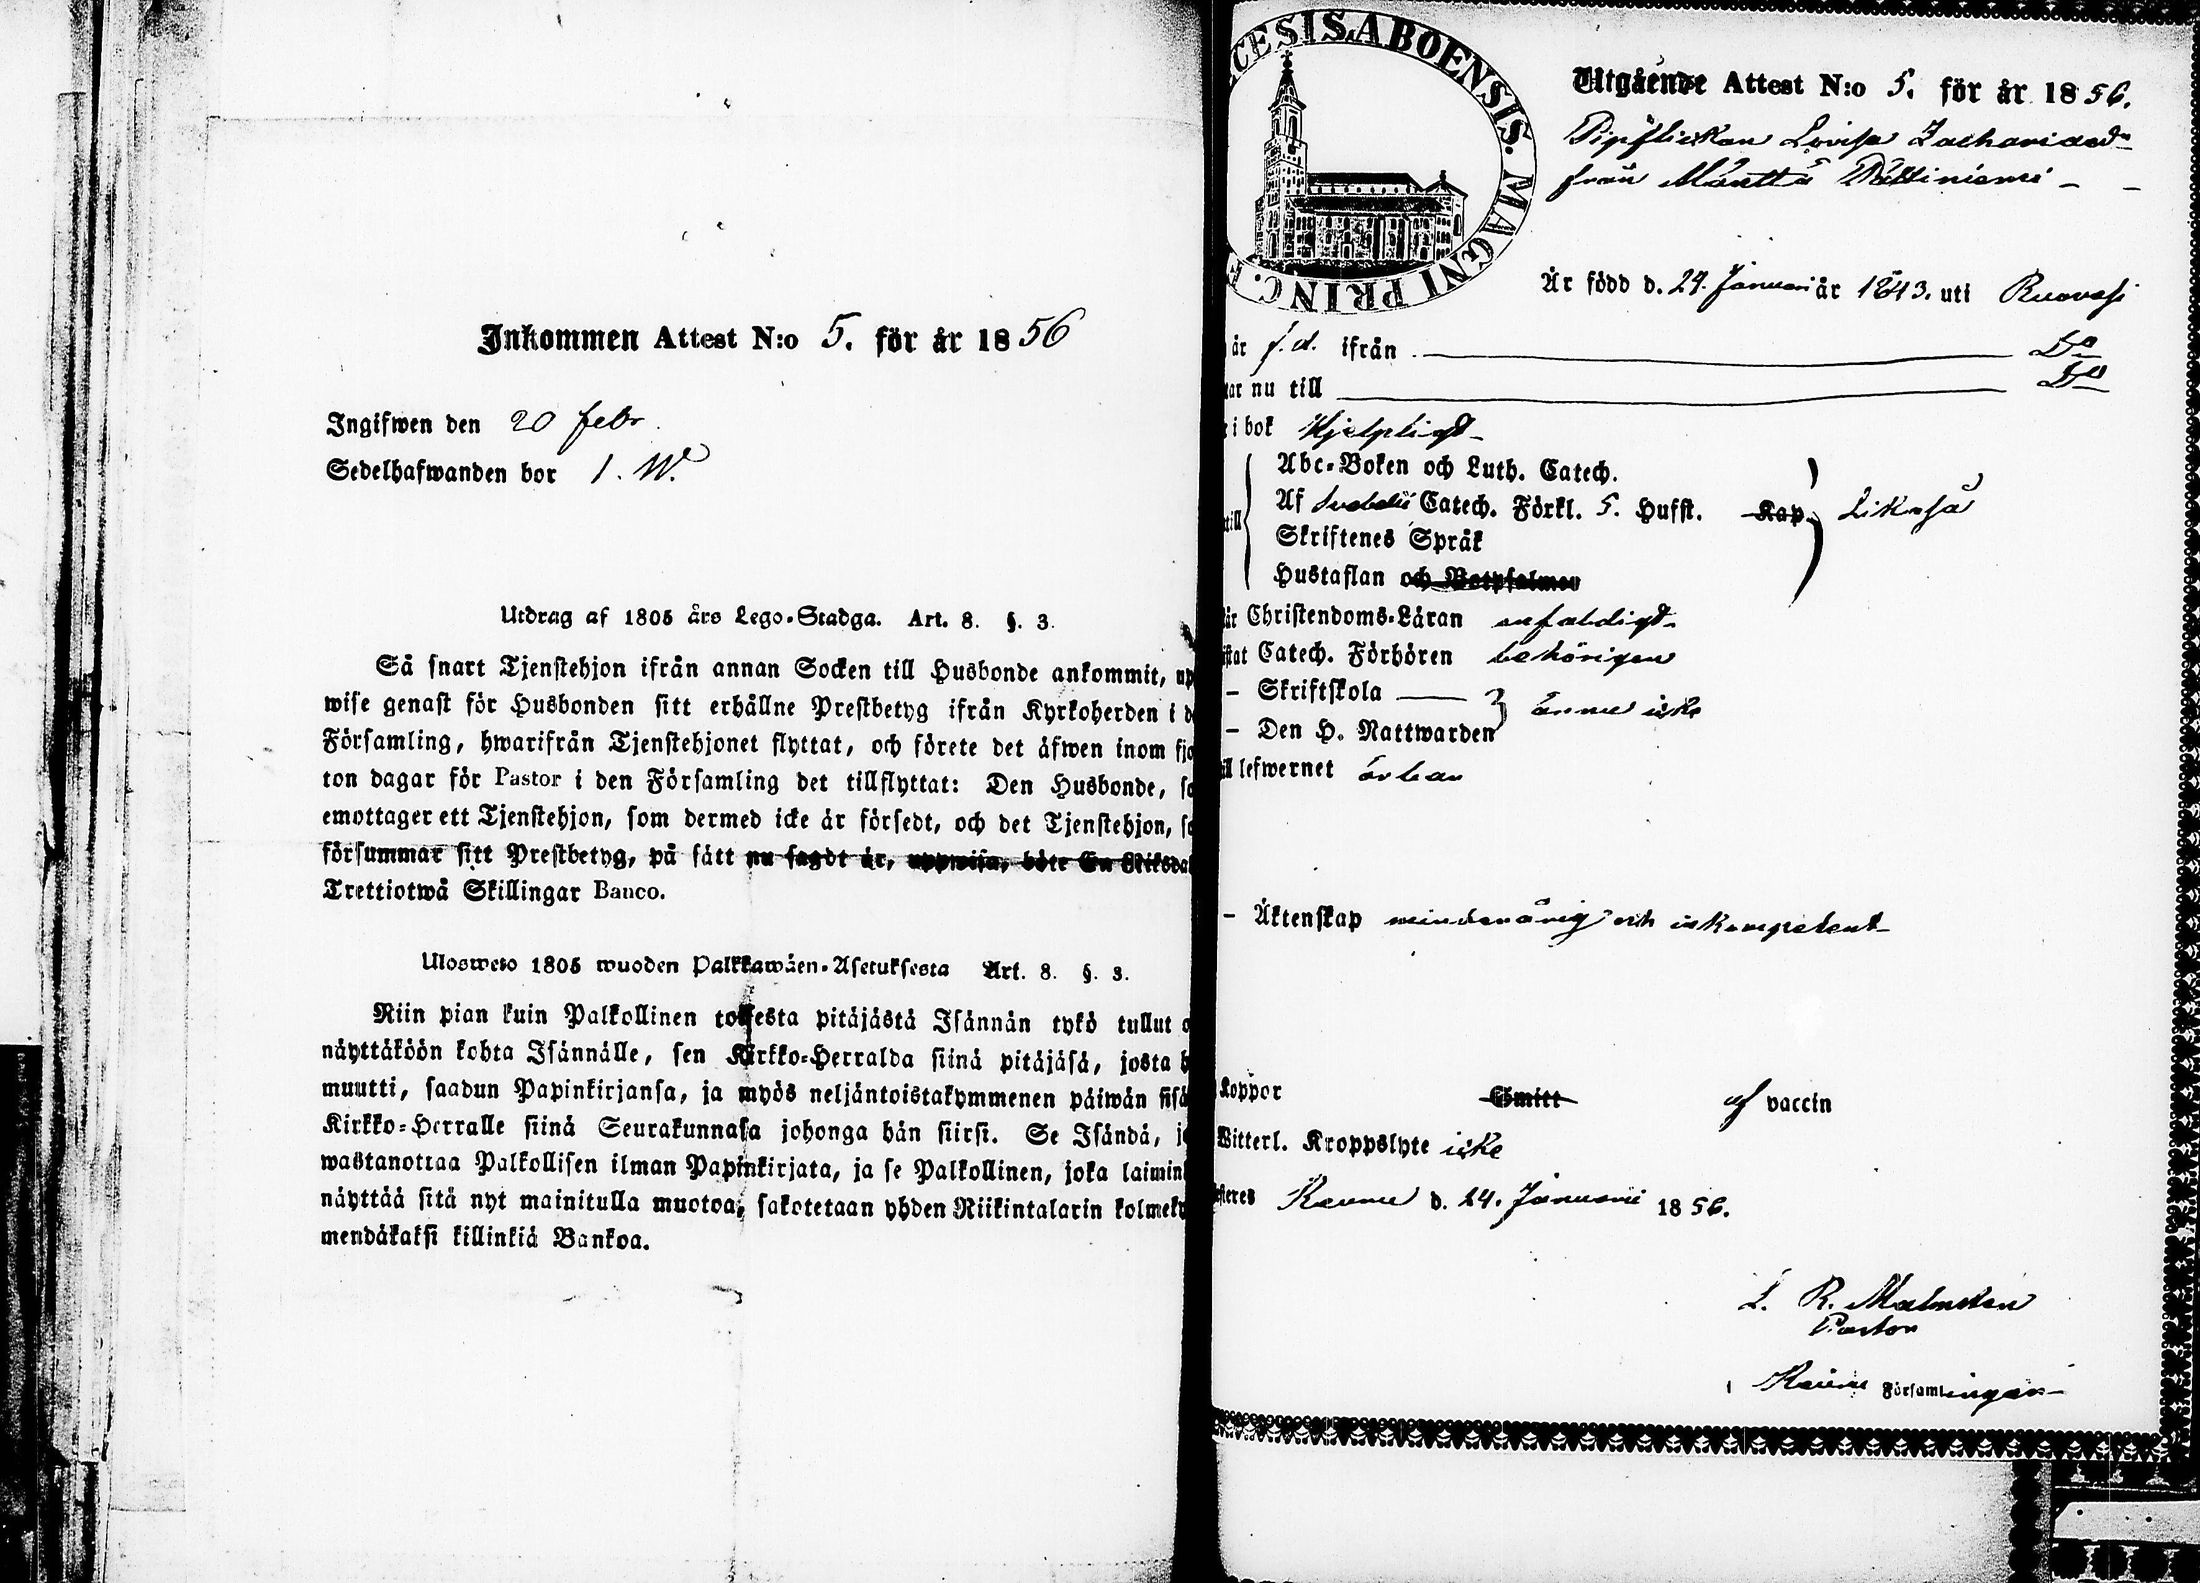 Inkommen Attest N:o 5. för år 1856
Ingifwen den 20 febr.
Sedelhafwanden bor 1. W.
Utdrag af 1805 års Lego-Stadga. Art. 8. §. 3.
Så snart Tjenstehjon ifrån annan Socken till Husbonde ankommit, up
wise genast för Husbonden sitt erhållne Prestbetyg ifrån Kyrkoherden i d
Församling, hwarifrån Tjenstehjonet flyttat, och förete det äfwen inom fjo
ton dagar för Pastor i den Församling det tillflyttat: Den Husbonde, so
emottager ett Tjenstehjon, som dermed icke är försedt, och det Tjenstehjon, so
försummar sitt Prestbetyg, på sätt nu sagdt är, uppwisa, böte En Riksdal
Trettiotwå Skillingar Banco.
Ulosweto 1805 wuoden Palkkawäen-Asetuksesta Art. 8. §. 3.
Niin pian kuin Palkollinen toisesta pitäjästä Isännän tykö tullut o
näyttäköön kohta Isännälle, sen Kirkko-Herralda siinä pitäjäsä, josta h
muutti, saadun Papinkirjansa, ja myös neljäntoistakymmenen päiwän sisä
Kirkko-Herralle siinä Seurakunnasa johonga hän siirsi. Se Isändä, jo
wastanottaa Palkollisen ilman Papinkirjata, ja se Palkollinen, joka laimin
näyttää sitä nyt mainitulla muotoa, sakotetaan yhden Riikintalarin kolmeky
mendäkaksi killinkiä Bankoa.
CESIS ABOENSIS. MAGNI PRINC. F
Utgående Attest N:o 5. för år 1856.
Pipflickan Lovisa Zachariasdr
från Mänttä Pättiniemi
Är född d. 24. Januari år 1843. uti Ruovesi
är f. d. ifrån Do
tar nu till Do
i bok Hjelpligt
Abc-Boken och Luth. Catech.
till Af Svebelii Catech. Förkl. 5. Hufst. Kap. Likaså
Skriftenes Språk
Hustaflan och Botpsalmer
är Christendoms-Läran enfaldigt
stat Catech. Förhören behörigen
- Skriftskola
ännu icke
- Den H. Nattwarden
ill lefwernet ärbar
- Äktenskap minderårig och inkompetent
Koppor Smitt af vaccin
Witterl. Kroppslyte icke
esteres Keuru d. 24. Januarii 1856.
L. R. Malmstén
Pastor
i Keuru Församlingar